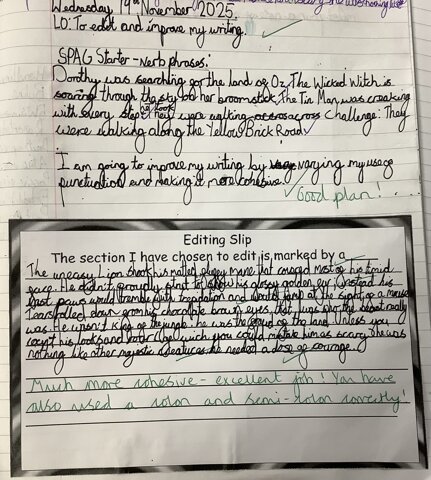 Wednesday 19th November 2025
LO: To edit and improve my writing.
SPAG Starter - verb phrases.
Dorothy was searching for the land of Oz. The Wicked Witch is
soaring through the sky on her broomstick. The Tin Man was creaking
with every step he took. They were walking across challenge: They
were walking along the Yellow Brick Road.
I am going to improve my writing by varying my use of
punctuation and making it more cohesive.
Good plan!
Editing Slip
The section I have chosen to edit is marked by a
The uneasy Lion shook his matted mane that covered most of his timid
face. He didn't proudly his glossy golden fur. Instead his
vast paws would tremble with trepidation and would at the sight of a mouse
Tears rolled down from his chocolate brown eyes, that was
was. He wasn't King of the jungle: he was the of the land. Unless you
count his looks and roar (he which you could mistake him as scary), he was
nothing like other majestic creatures: he needed a dose of courage.
Much more cohesive - excellent job! You have
also used a colon and semi-colon correctly!